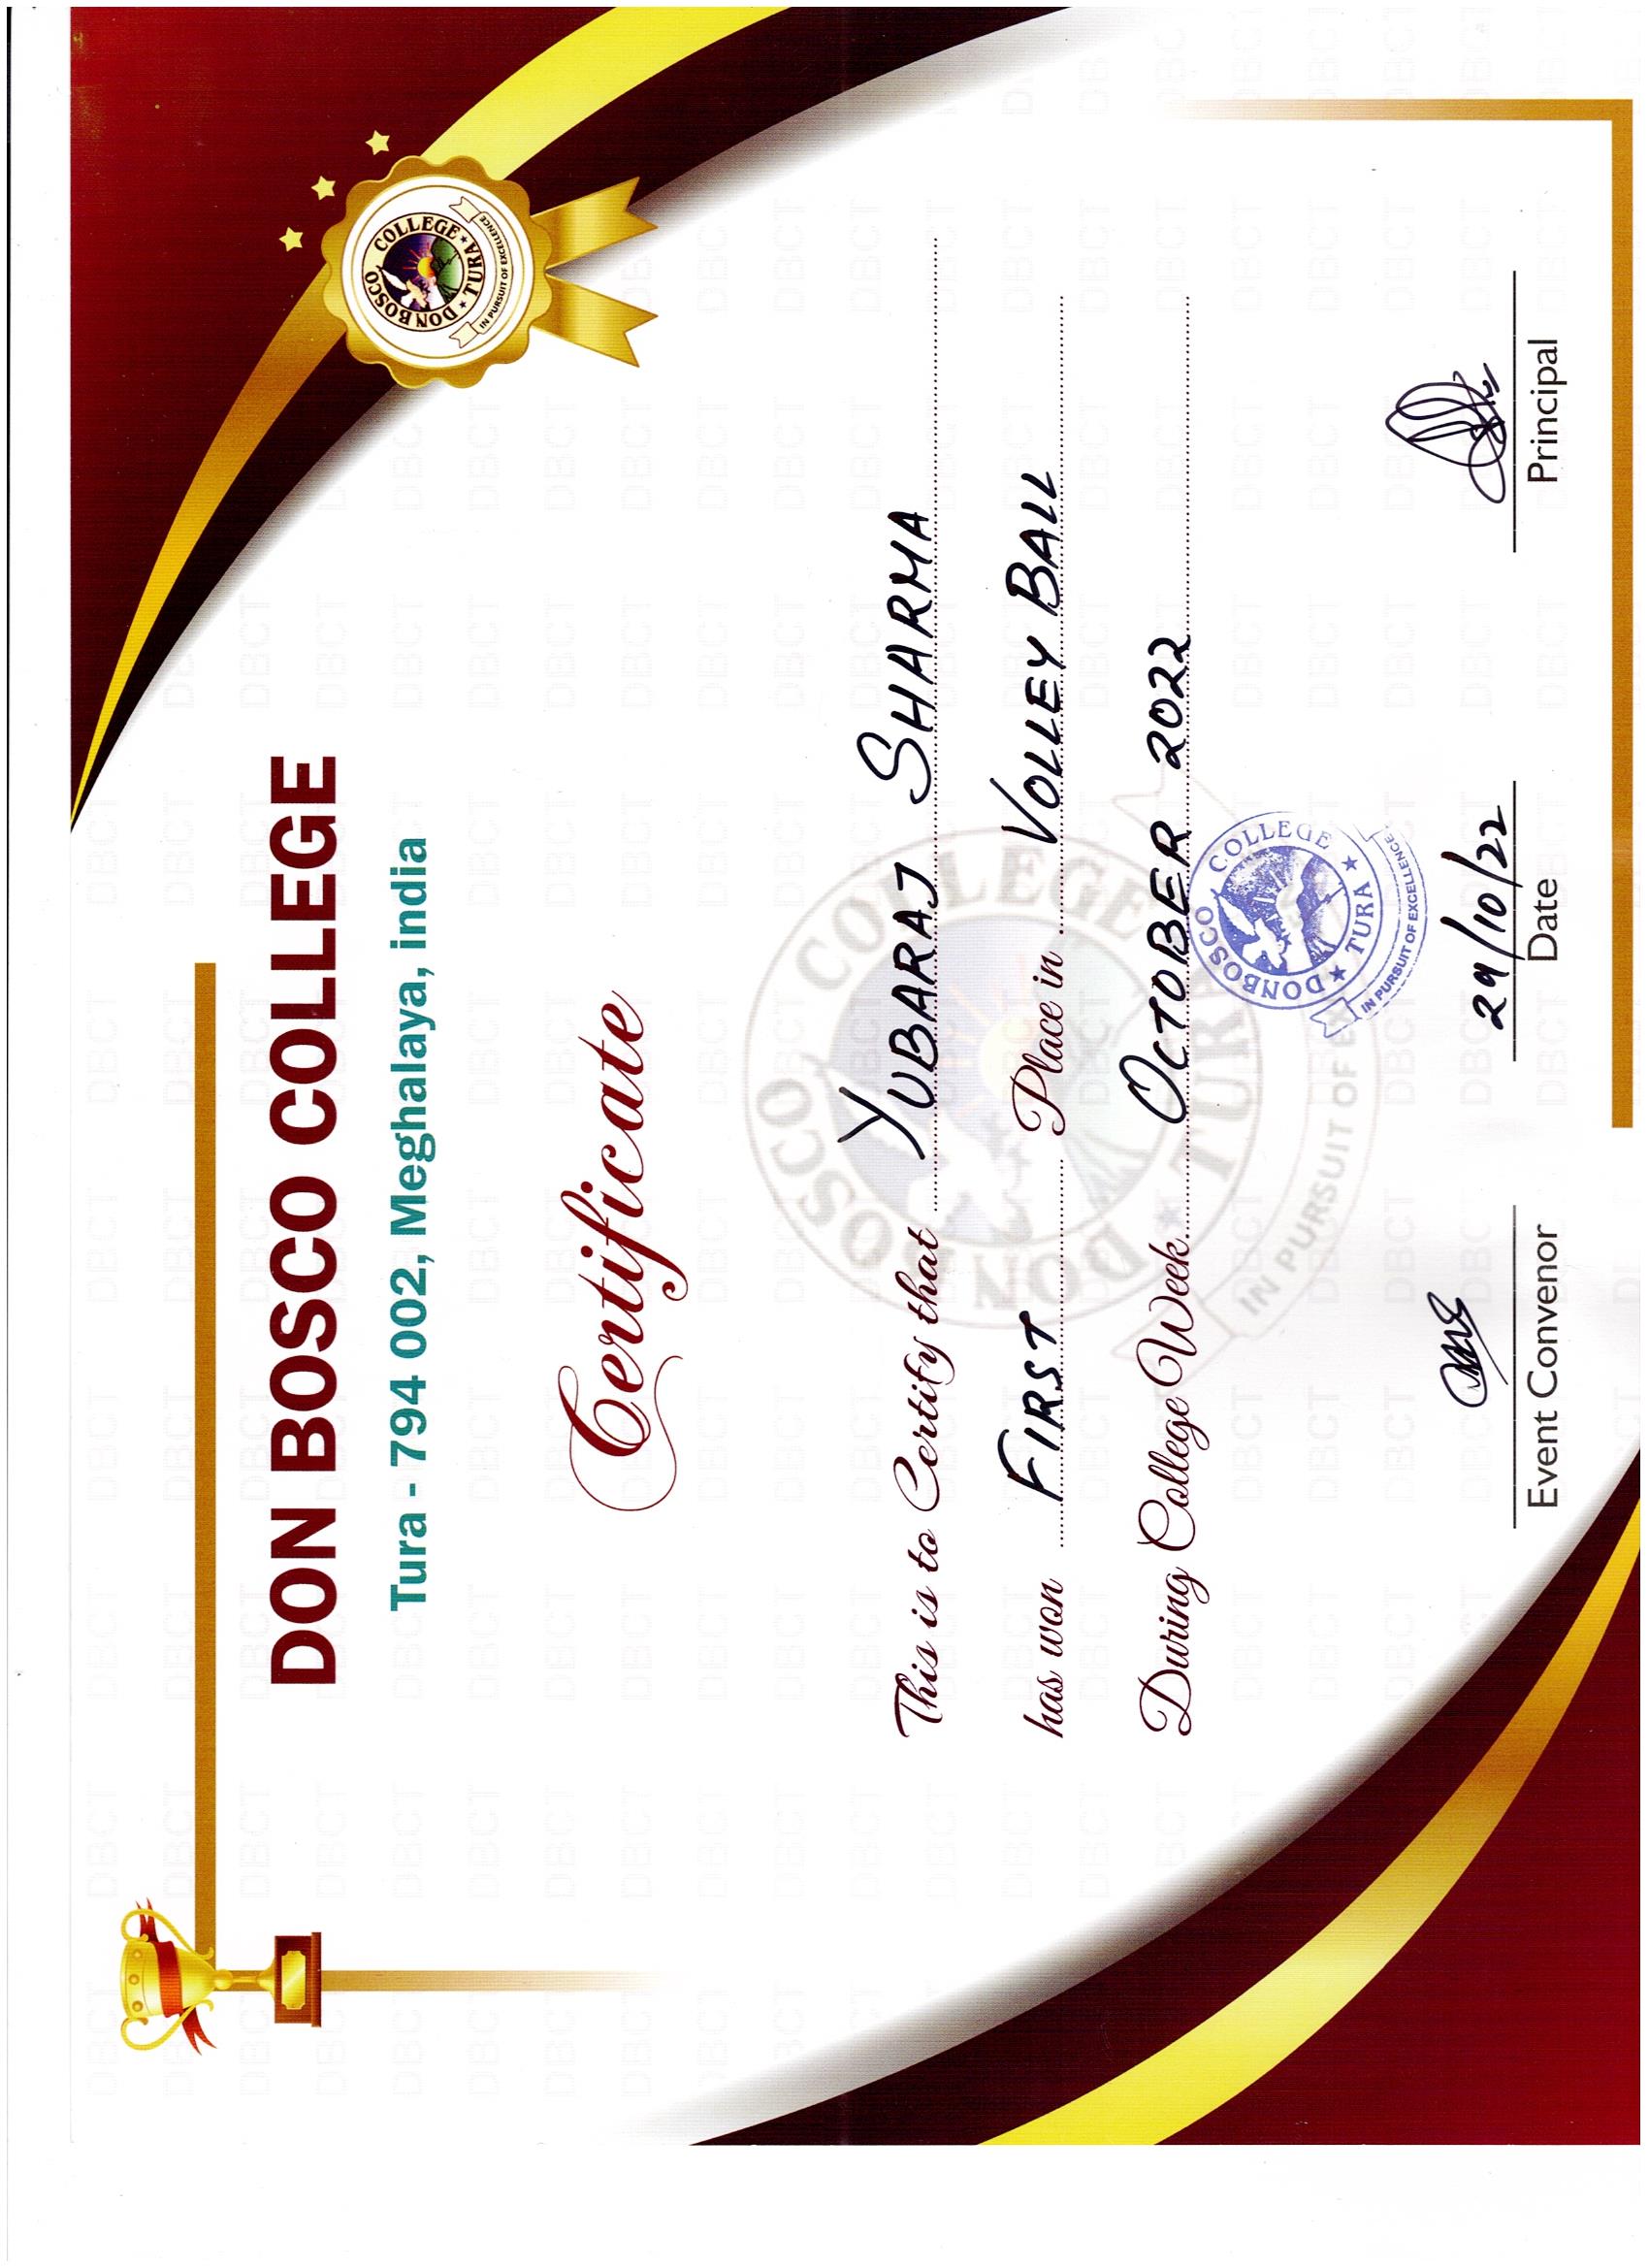 DON BOSCO COLLEGE
Tura - 794 002, Meghalaya, india
DON BOSCO COLLEGE
TURA
IN PURSUIT OF EXCELLENCE
Certificate
This is to Certify that YUBARAJ SHARMA
has won FIRST Place in VOLLEY BALL
During College Week OCTOBER 2022
DONBOSCO COLLEGE
TURA
IN PURSUIT OF EXCELLENCE
29/10/22
Event Convenor Date Principal